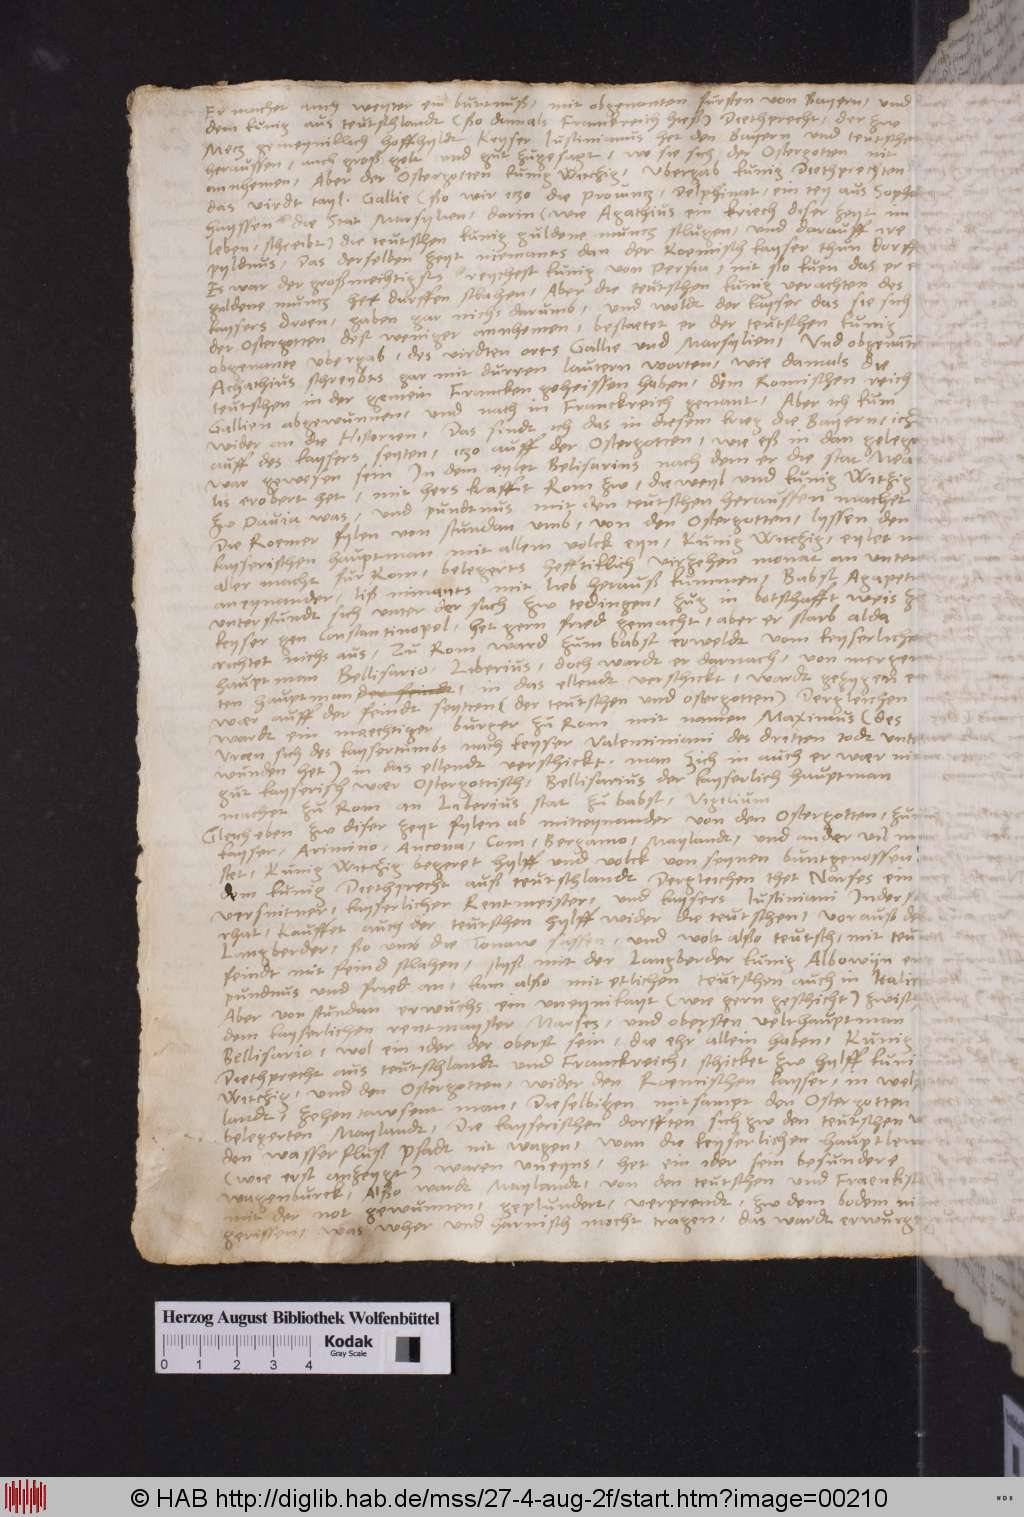 Er machet auch weyter ein buntnuß, mit obgenanten fursten von Bayern, und
dem kunig aus teutschlandt (ßo damals Franckreich hieß) Diethprecht, der zw
Mecz gemeyniklich hoffhyldt. Keyser Justinianus het den Bayern und teutschen
heraussen, auch groß gelt und gut zugesagt, wo sie sich der Ostergotten nit
annhemen, Aber der Ostergotten kunig Witchig, Ubergab kunig Diethprechten,
das virdt tayl Gallie (ßo wir iczo die Provincz, Delphinat, ein teyl aus Sopho
hayssen) die Stat Marsylien, darin (wie Agathius ein kriech diser zeyt im
leben, schreibt) die teutschen kunig guldene muncz schlugen, und darauff ire
pyldnus, Das derselben zeyt niemants dan der Roemisch kayser thun dorfft
Es war der großmechtigst reychest kunig von Persia, nit ßo kuen das er e
guldene muncz het durffen schlahen, Aber die teutschen kunig verachten des
kaysers droen, gaben gar nichs darumb, und woldt der kayser das sie sich
der Ostergotten dest weniger annhemen, bestaetet er der teutschen kunig
obgenante ubergab, des virdten orts Gallie und Marsylien, Und obgenanter
Agathius schreybts gar mit durren lautern worten, wie damals die
teutschen in der gemein Francken geheissen haben, dem Romischen reich
Gallien abgewunnen, und nach in Franckreich genant, Aber ich kum
wider an die Historien, Das findt ich das in diesem krieg die Bayern, iczo
auff des kaysers seyten, iczo auff der Ostergotten, wie eß in dan gelegen
war gewesen sein In dem eylet Belisarius nach dem er die stat Nea
lis erobert het, mit hers krafft Rom zw, dieweyl und kunig Witchig
zw Pavia was, und puntnus mit den teutschen heraussen machet
Die Roemer fylen von stundan umb, von den Ostergotten, lyssen den
kayserischen hauptman mit allem volck eyn, Kunig Witchig, eylet m
aller macht fur Rom, belegerts hefftiklich virzehen monat an unter
aneynander, ließ nimants mit lieb herauß kummen, Babst Agapetus
unterstundt sich unter der sach zw tedingen, zug in botschafft weis z
keyser gen Constantinopel, het gern fried gemacht, aber er starb alda
richtet nichs aus, Zu Rom ward zum babst erweldt vom keyserlichen
hauptman Bellisario, Liberius, doch wardt er darnach, von
ten hauptman der feindt, in das ellendt verschickt, wardt gezygen er
waer auff der feindt seytten (der teutschen und ostergotten) Dergleichen
wardt ein maechtiger burger zu Rom mit namen Maximus (des
Uraen sich des kaysertumbs nach keyser Valentiniani des dritten todt unter
wunden het) in das ellendt verschickt, man zich in auch er waer ni
gut kayserisch waer Ostergottisch, Bellisarius der kayserlich hauptman
machet zu Rom an Liberius stat zu babst, Vigilium
Gleich eben zw diser zeyt fylen ab mitteynander von den Ostergotten, zum
kayser, Arimino, Ancona, Com, Bergamo, Maylandt, und ander vil m
stet, Kunig Witchig begeret hylff und volck von seynen buntgenossen
dem kunig Diethprecht auß teutschlandt Dergleichen thet Narses ein
versnitner, kayserlicher Rentmeister, und kaysers Justiniani Inder
rhat, Kauffet auch der teutschen hylff wider die teutschen, vorauß der
Langberder, ßo umb die Tonaw sassen, und wolt alßo teutsch, mit teu
feindt mit feind schlahen, styft mit der Langberder kunig Albowyn
puntnus und fried an, kam alßo mit etlichen teutschen auch in Italien
Aber von stundan erwuchs ein uneynikayt (wie gern geschicht) zwisch
dem kayserlichen rentmayster Narses, und obersten veldthauptman
Bellisario, wol ein ider der oberst sein, die ehr allein haben, Kunig
Diethprecht aus teutschlandt und Franckreich, schicket zw hylff kuni
Witchig, und den Ostergotten, wider den Roemischen kaysser, in welsch
landt, zehen tawsent man, Dieselbigen mitsampt den Ostergotten
belegerten Maylandt, Die kayserischen dorfften sich zw den teutschen
den wasserfluß Pfadt nit wagen, wan die keyserlichen hauptlewt
(wie erst anzeygt) waren uneyns, het ein ider sein besundere
wagenburck, Alßo wardt Maylandt, von den teutschen und Franckisch
mit der not gewunnen, geplundert, verprendt, zw dem bodem ni
gerissen, was wher und harnisch mocht tragen, das wardt erwurgt
Herzog August Bibliothek Wolfenbüttel
Kodak
Gray Scale
0 1 2 3 4
© HAB http://diglib.hab.de/mss/27-4-aug-2f/start.htm?image=00210